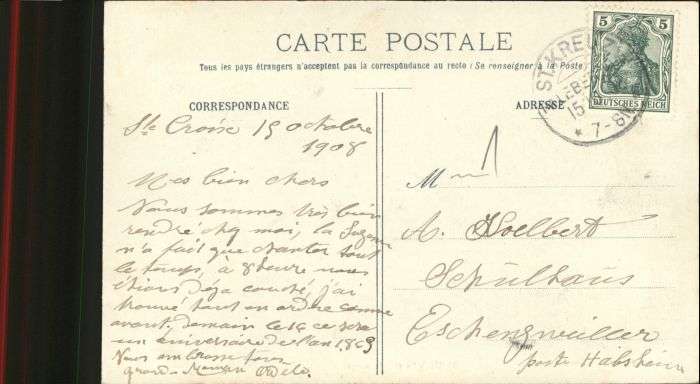 CARTE POSTALE
Tous les pays étrangers n'acceptent pas la correspondance au recto (Se renseigner à la Poste)
CORRESPONDANCE
Ste Croix 15 octobre
1908
Mes bien chers
Nous sommes très bien
rendre chez moi, la Suzanne
n'a fait que chanter tout
le temps, à 8 heure nous
étions déjà couché, j'ai
trouvé tout en ordre comme
avant, demain le 16 ce sera
un aniversaire de l'an 1869
Vous embrasse
grand-Maman
ADRESSE
M
A. Hoelbert
Schulhaus
Eschenzwiller
poste Habsheim
5 5
DEUTSCHES REICH
ST.KREU
15
7-8N